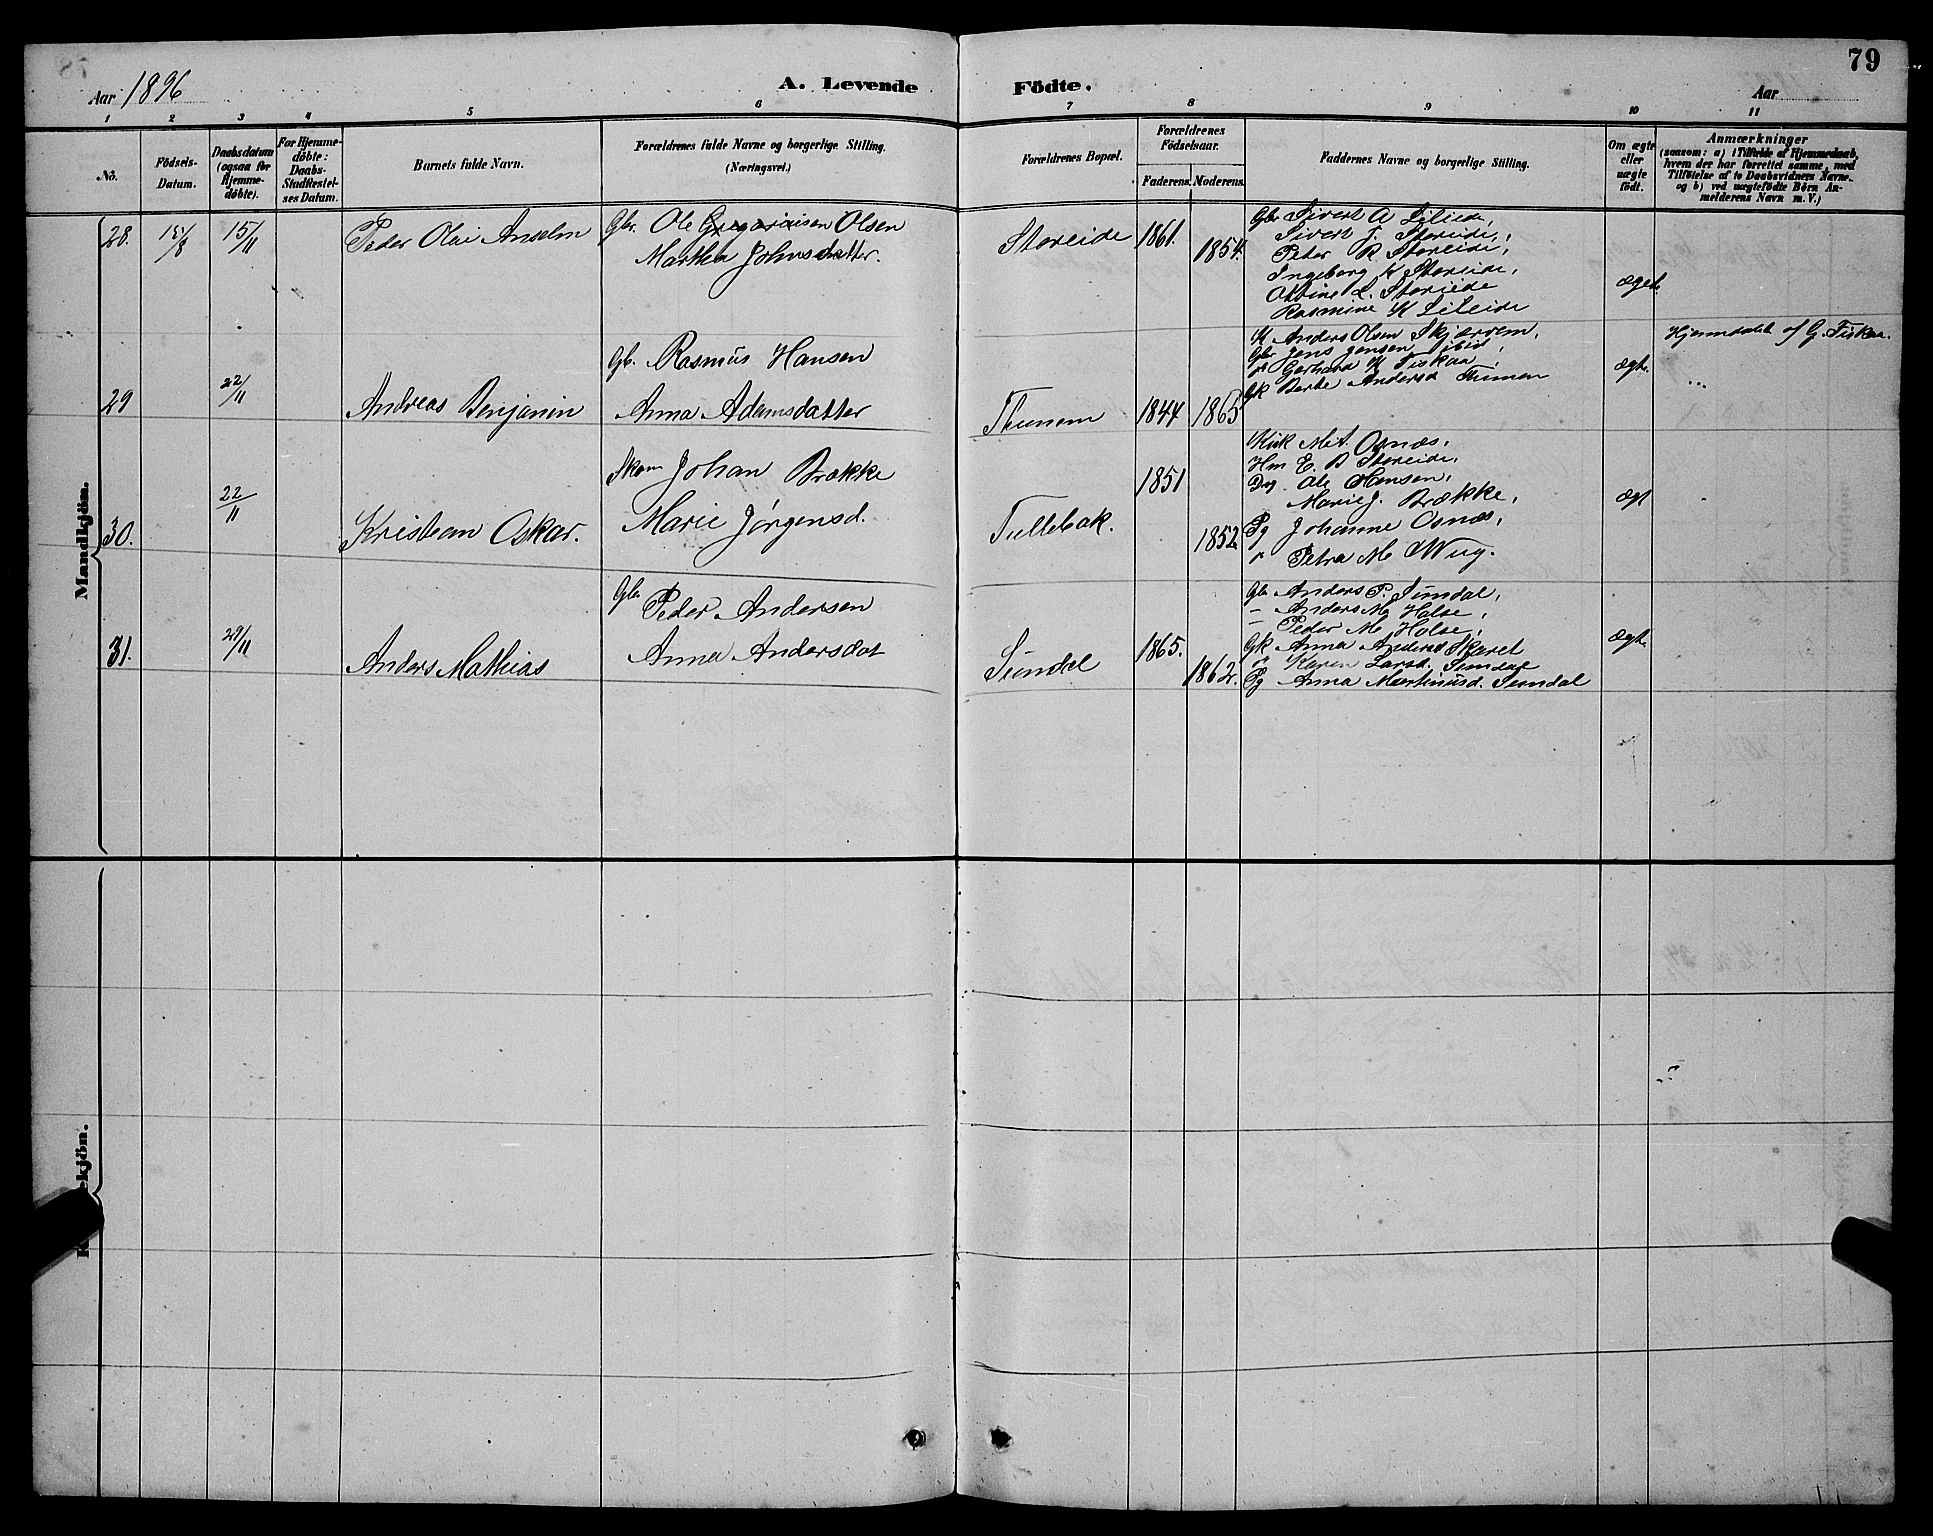 79
Aar 1896
A. Levende
Födte.
Aar
1 2 3 4 5 6 7 8 9 10 11
No.
Födsels-Datum.
Daabsdatum (ogsaa for Hjemme-döbte).
For Hjemme-döbte: Daabs-Stadfæstel-ses Datum.
Barnets fulde Navn.
Forældrenes fulde Navne og borgerlige Stilling. (Næringsvei.)
Forældrenes Bopæl.
Forældrenes Födselsaar.
Faderens. Moderens.
Faddernes Navne og borgerlige Stilling.
Om ægte eller uægte födt.
Anmærkninger
(saasom: a) i Tilfælde af Hjemmedaab,
hvem der har forrettet samme, med
Tilföielse af to Daabsvidners Navne.
og b) ved uægtefödte Börn An-
melderens Navn m. V.)
Mandkjön.
28. 15/11 Peder Olai Anselm
Gbr. Ole Gregoriusen Olsen
Martha Johnsdatter.
Storeide 1861. 1854.
Gbr Sivert A Lileide,
Sivert J. Storeide,
Peder R Storeide,
Ingeborg K Storeide,
Oline L. Storeide
Rasmine K Lileide
ægte.
29 22/11 Andreas Benjamin
Gb. Rasmus Hansen
Anna Adamsdatter
Thunem 1844 1865
K Anders Olsen Skjærvem,
Gbr Jens Jensen ibid,
Gerhard K Fiskaa
Gk Berte Andersd Thunem
ægt.
Hjemmdøbt af G. Fiskaa.
30. 22/11 Kristian Oskar.
Skom Johan Brække
Marie Jørgensd.
Tullebak. 1851 1852
Kirk M. A. Osnæs,
Hm E. B Storeide,
Dg. Ole Hansen,
Marie J. Brække,
Pg Johanne Osnæs,
Petra M Wug.
ægt
31. 29/11 Anders Mathias
Gbr Peder Andersen
Anna Andersdat
Sundal 1865. 1862.
Gbr Anders P. Sundal,
- Anders M Halse,
- Peder M. Halse,
Gk Anna Andersd Skaret
Karen Larsd. Sundal
Pg Anna Martinusd. Sundal
ægt.